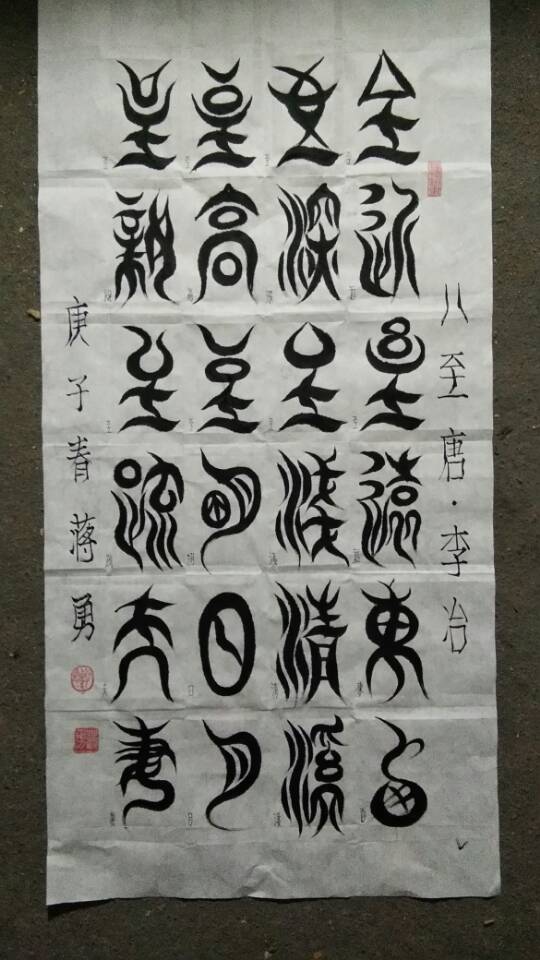 八至唐·李冶
至近至遠東西
至深至淺清溪
至高至明日月
至親至疏夫妻
庚子春蒋勇